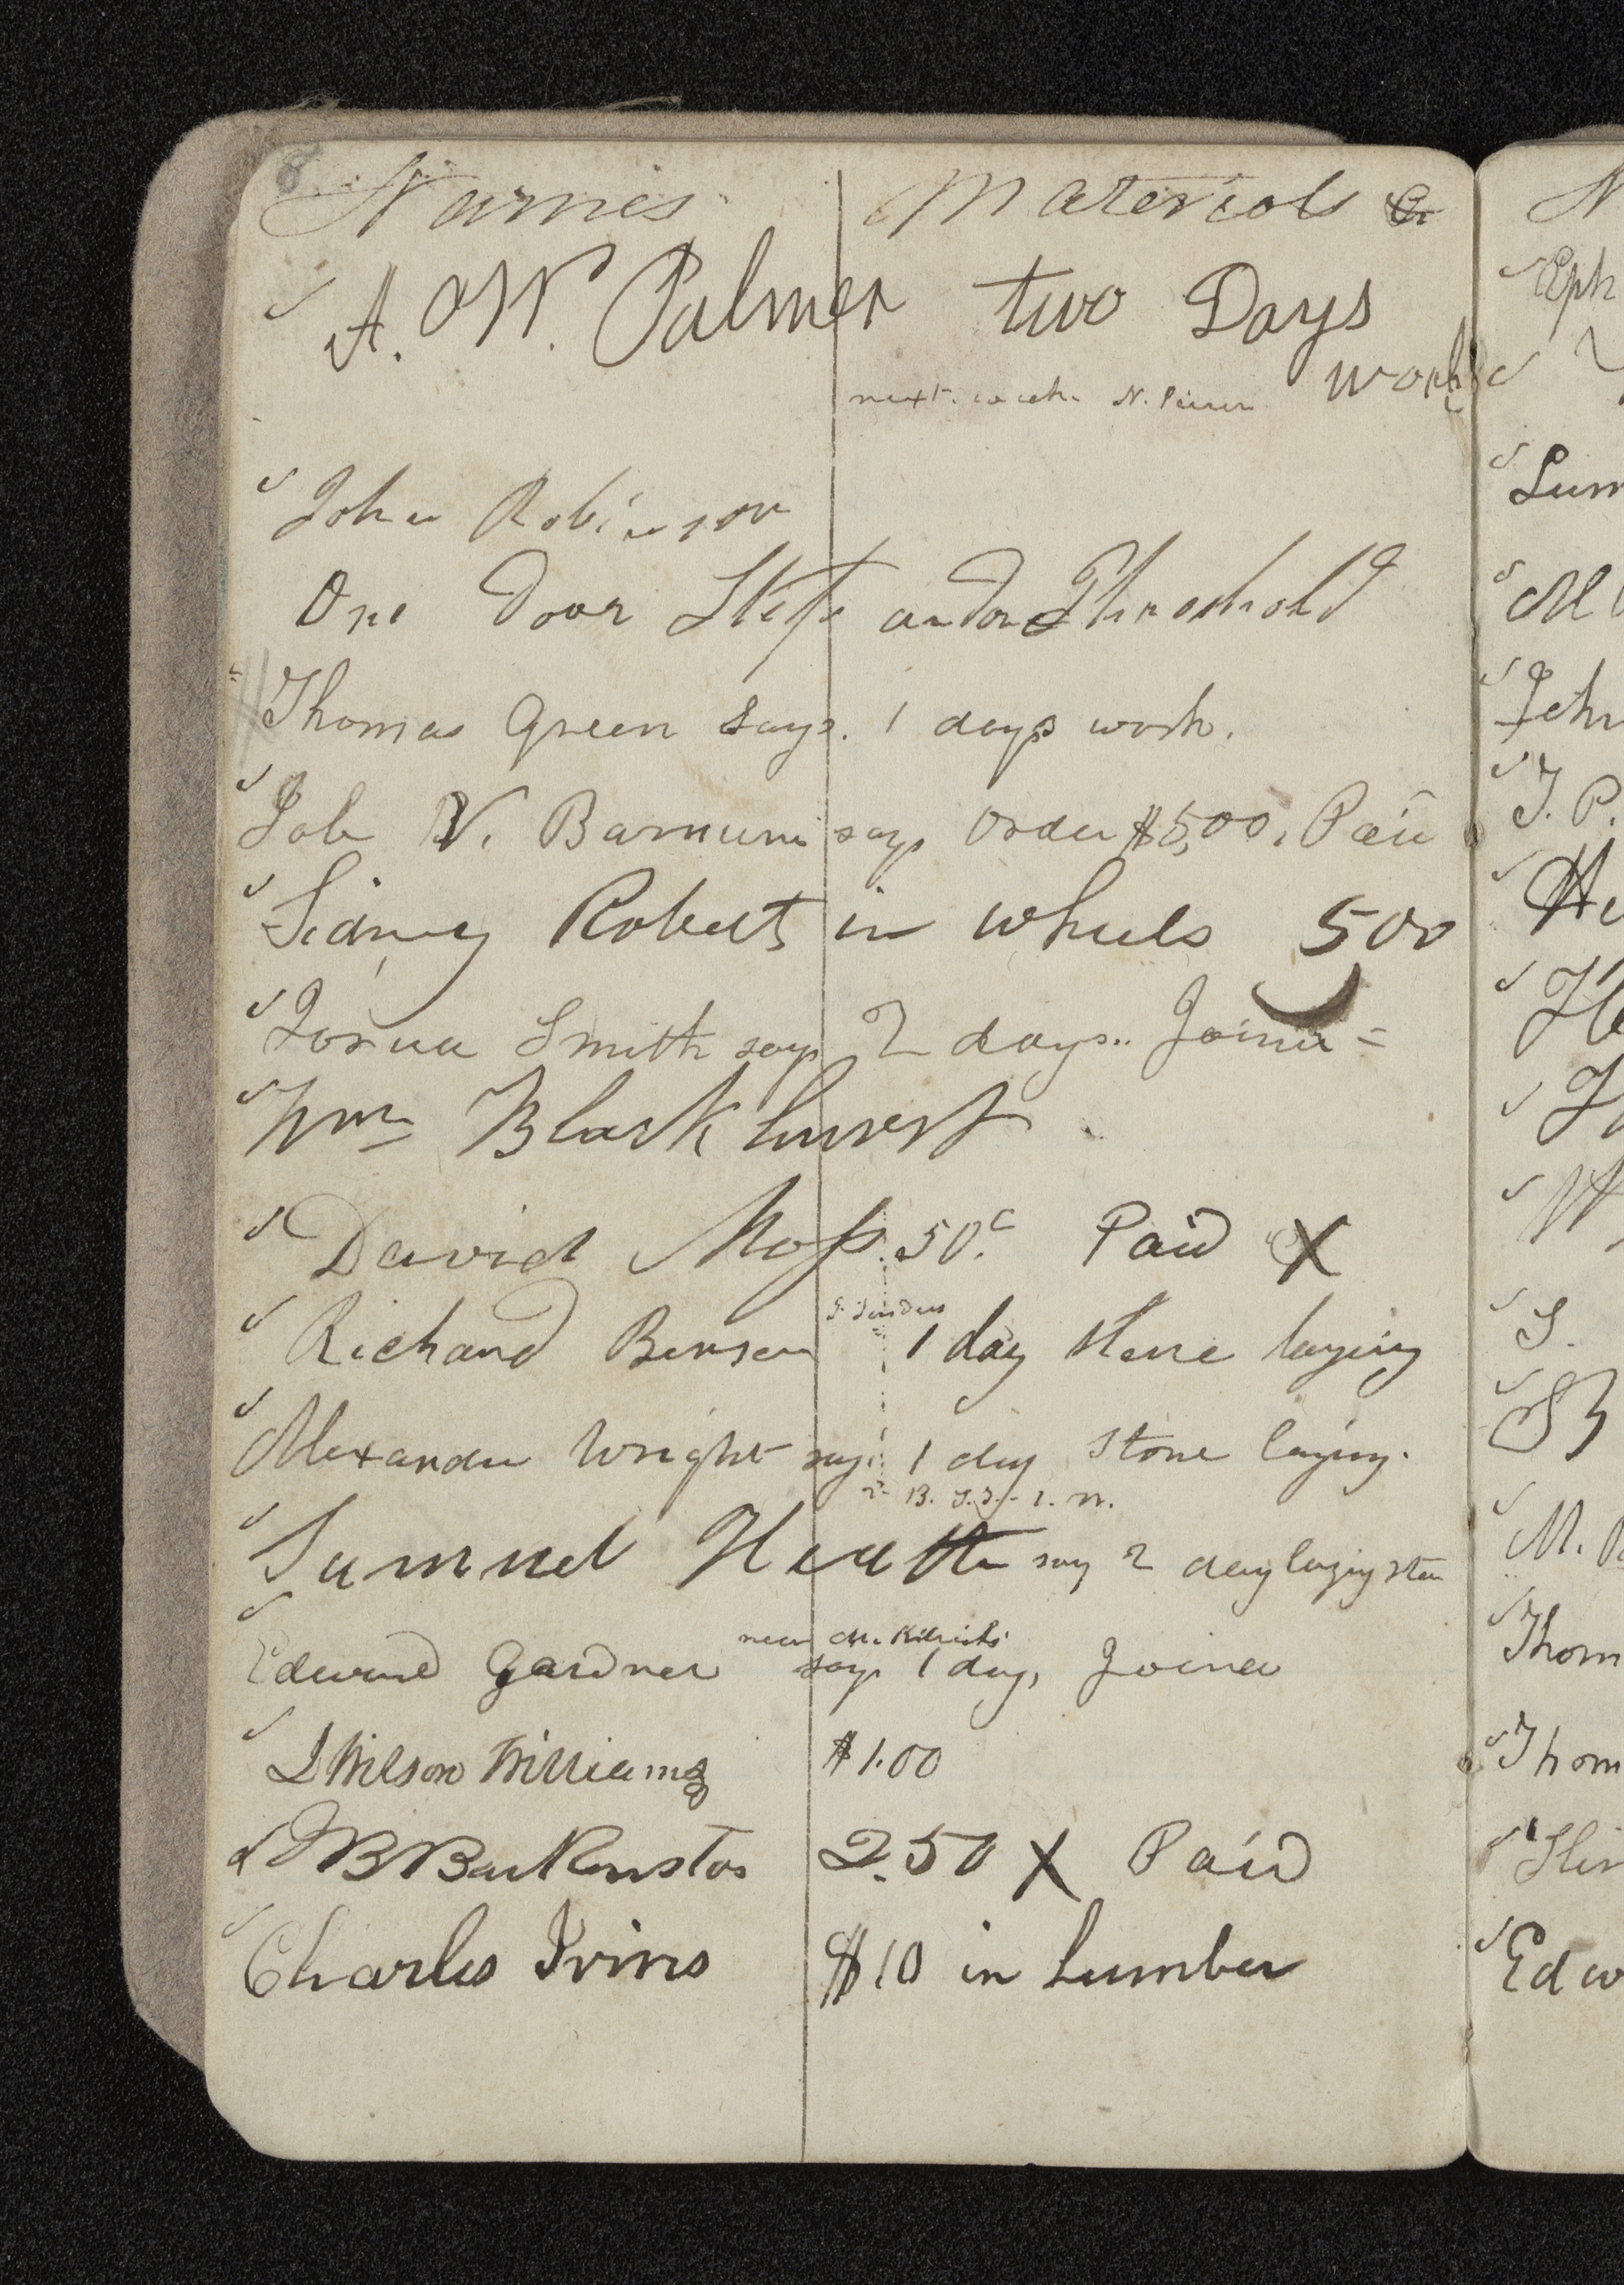 8
Names Materials &c
✓ A. W. Palmer two Days
next week N. work
✓ John Robinson
One Door Step and one Threshold
Thomas Green says. 1 days work.
✓ Job V. Barnum says order $5,00. Paid
✓ Sidney Roberts in wheels 500
✓ Josua Smith says 2 days.. Joiner =
✓ Wm Blackhurst
✓ David Moss. 50.c Paid X
✓ Richard Benson 1 day stone laying
✓ Alexander Wright says 1 day stone laying.
✓ Samuel Heath say 2 day laying stone
near
✓ Edward Gardner says 1 day, Joiner
✓ L Wilson Williams $1.00
✓ J B Backenstos 2.50 X Paid
✓ Charles Ivins $10 in Lumber
N
✓ Eph
✓
✓ Lum
✓ M
✓ John
✓ J. P.
✓ He
✓ He
✓ J
✓ W
✓ S.
✓ S
✓ M.
✓ Thom
✓ Thom
✓ Hir
✓ Edw